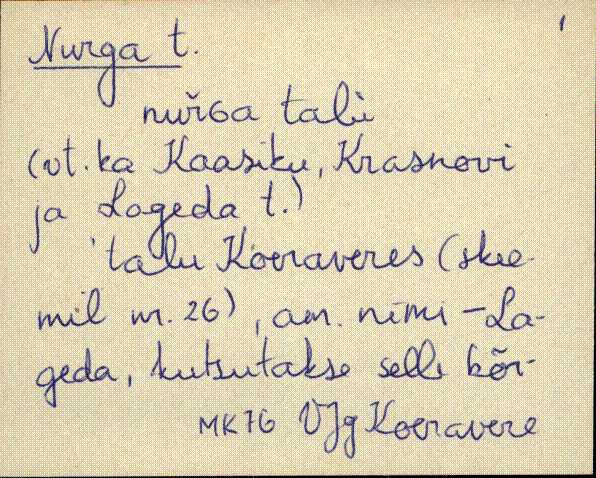 1
Nurga t.
nuřGa talù
(vt. ka Kaasiku, Krasnovi
ja Lageda t.)
talu Koeraveres (skee-
mil nr. 26), am. nimi - La-
geda, kutsutakse selle kõr-
MK76 VJg Koeravere